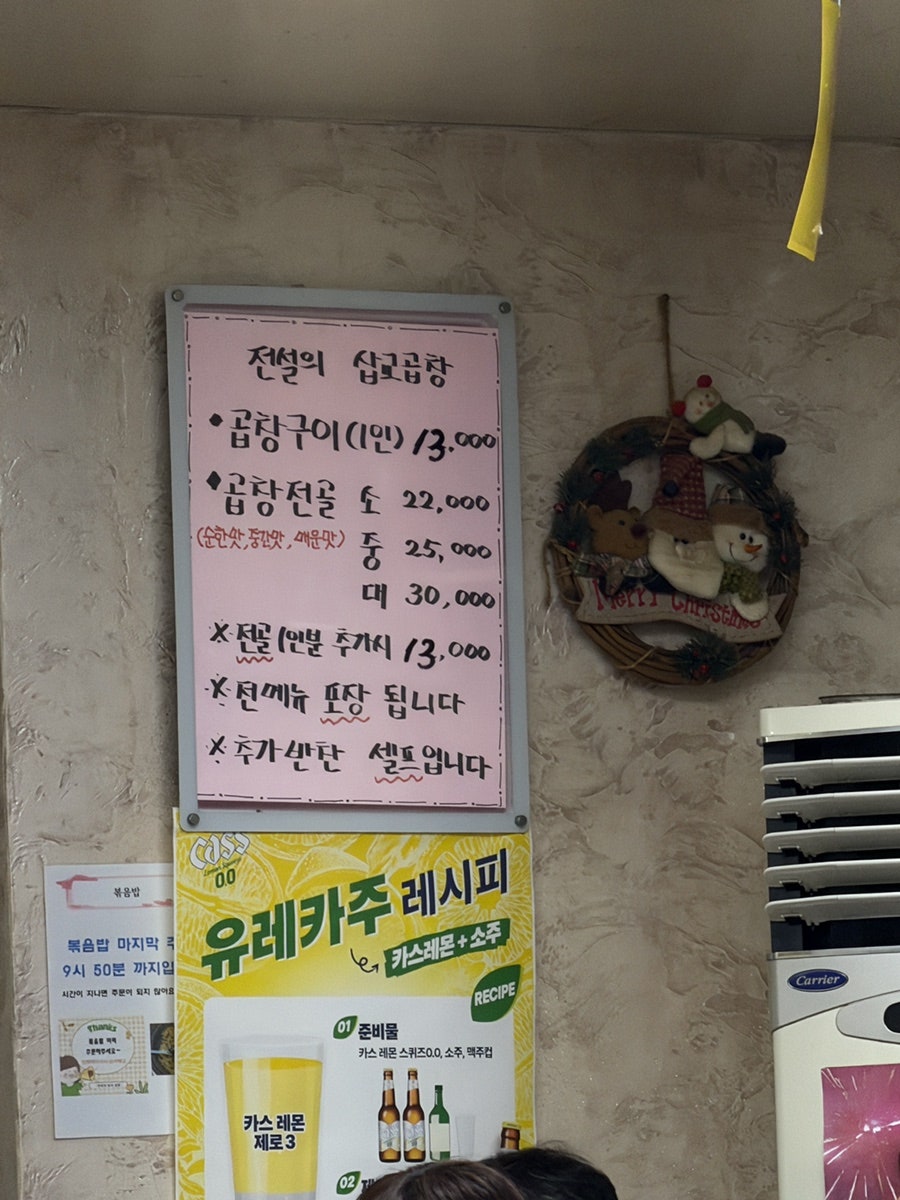 전설의 삽교곱창
• 곱창구이(1인) 13,000
♦ 곱창전골 소 22,000
(순한맛, 중간맛, 매운맛) 중 25,000
대 30,000
※ 전골 1인분 추가시 13,000
※ 전메뉴 포장 됩니다
※ 추가반찬 셀프입니다
Merry Christmas
볶음밥
볶음밥 마지막
9시 50분 까지입
시간이 지나면 주문이 되지 않아요
Thanks
Cass
0.0
유레카주 레시피
카스레몬 + 소주
RECIPE
01 준비물
카스 레몬 스퀴즈0.0, 소주, 맥주컵
카스 레몬
제로3
02
Carrier